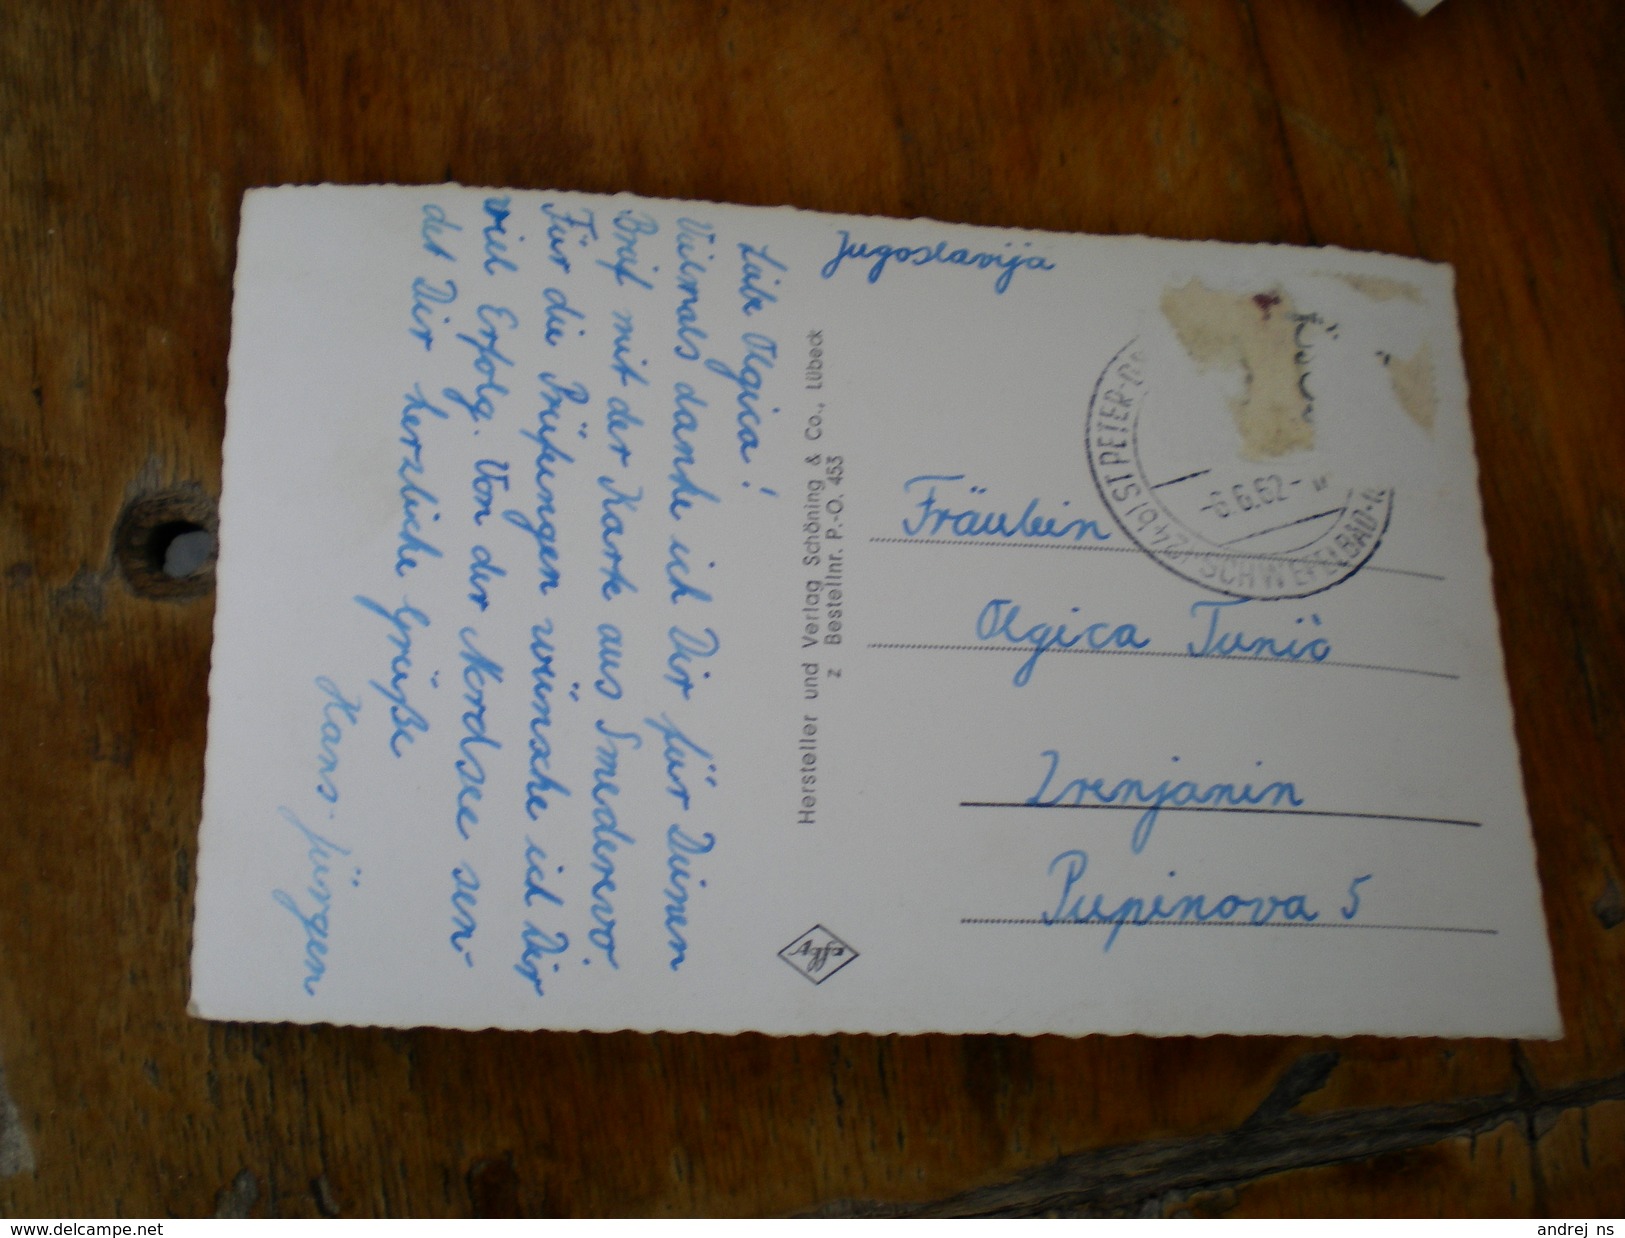 Liebe Olgica!
Vielmals danke ich Dir für Deinen
Brief mit der Karte aus Smederevo.
Für die Prüfungen wünsche ich Dir
viel Erfolg. Von der Nordsee sen-
det Dir herzliche Grüße
Hans-Jürgen
Hersteller und Verlag Schöning & Co., Lübeck
z Bestellnr. P.-O. 453
Jugoslavija
(24b) ST PETER-
SCHWEFELBAD
6.62
Fräulein
Olgica Tunić
Zrenjanin
Pupinova 5
www.delcampe.net
andrej ns